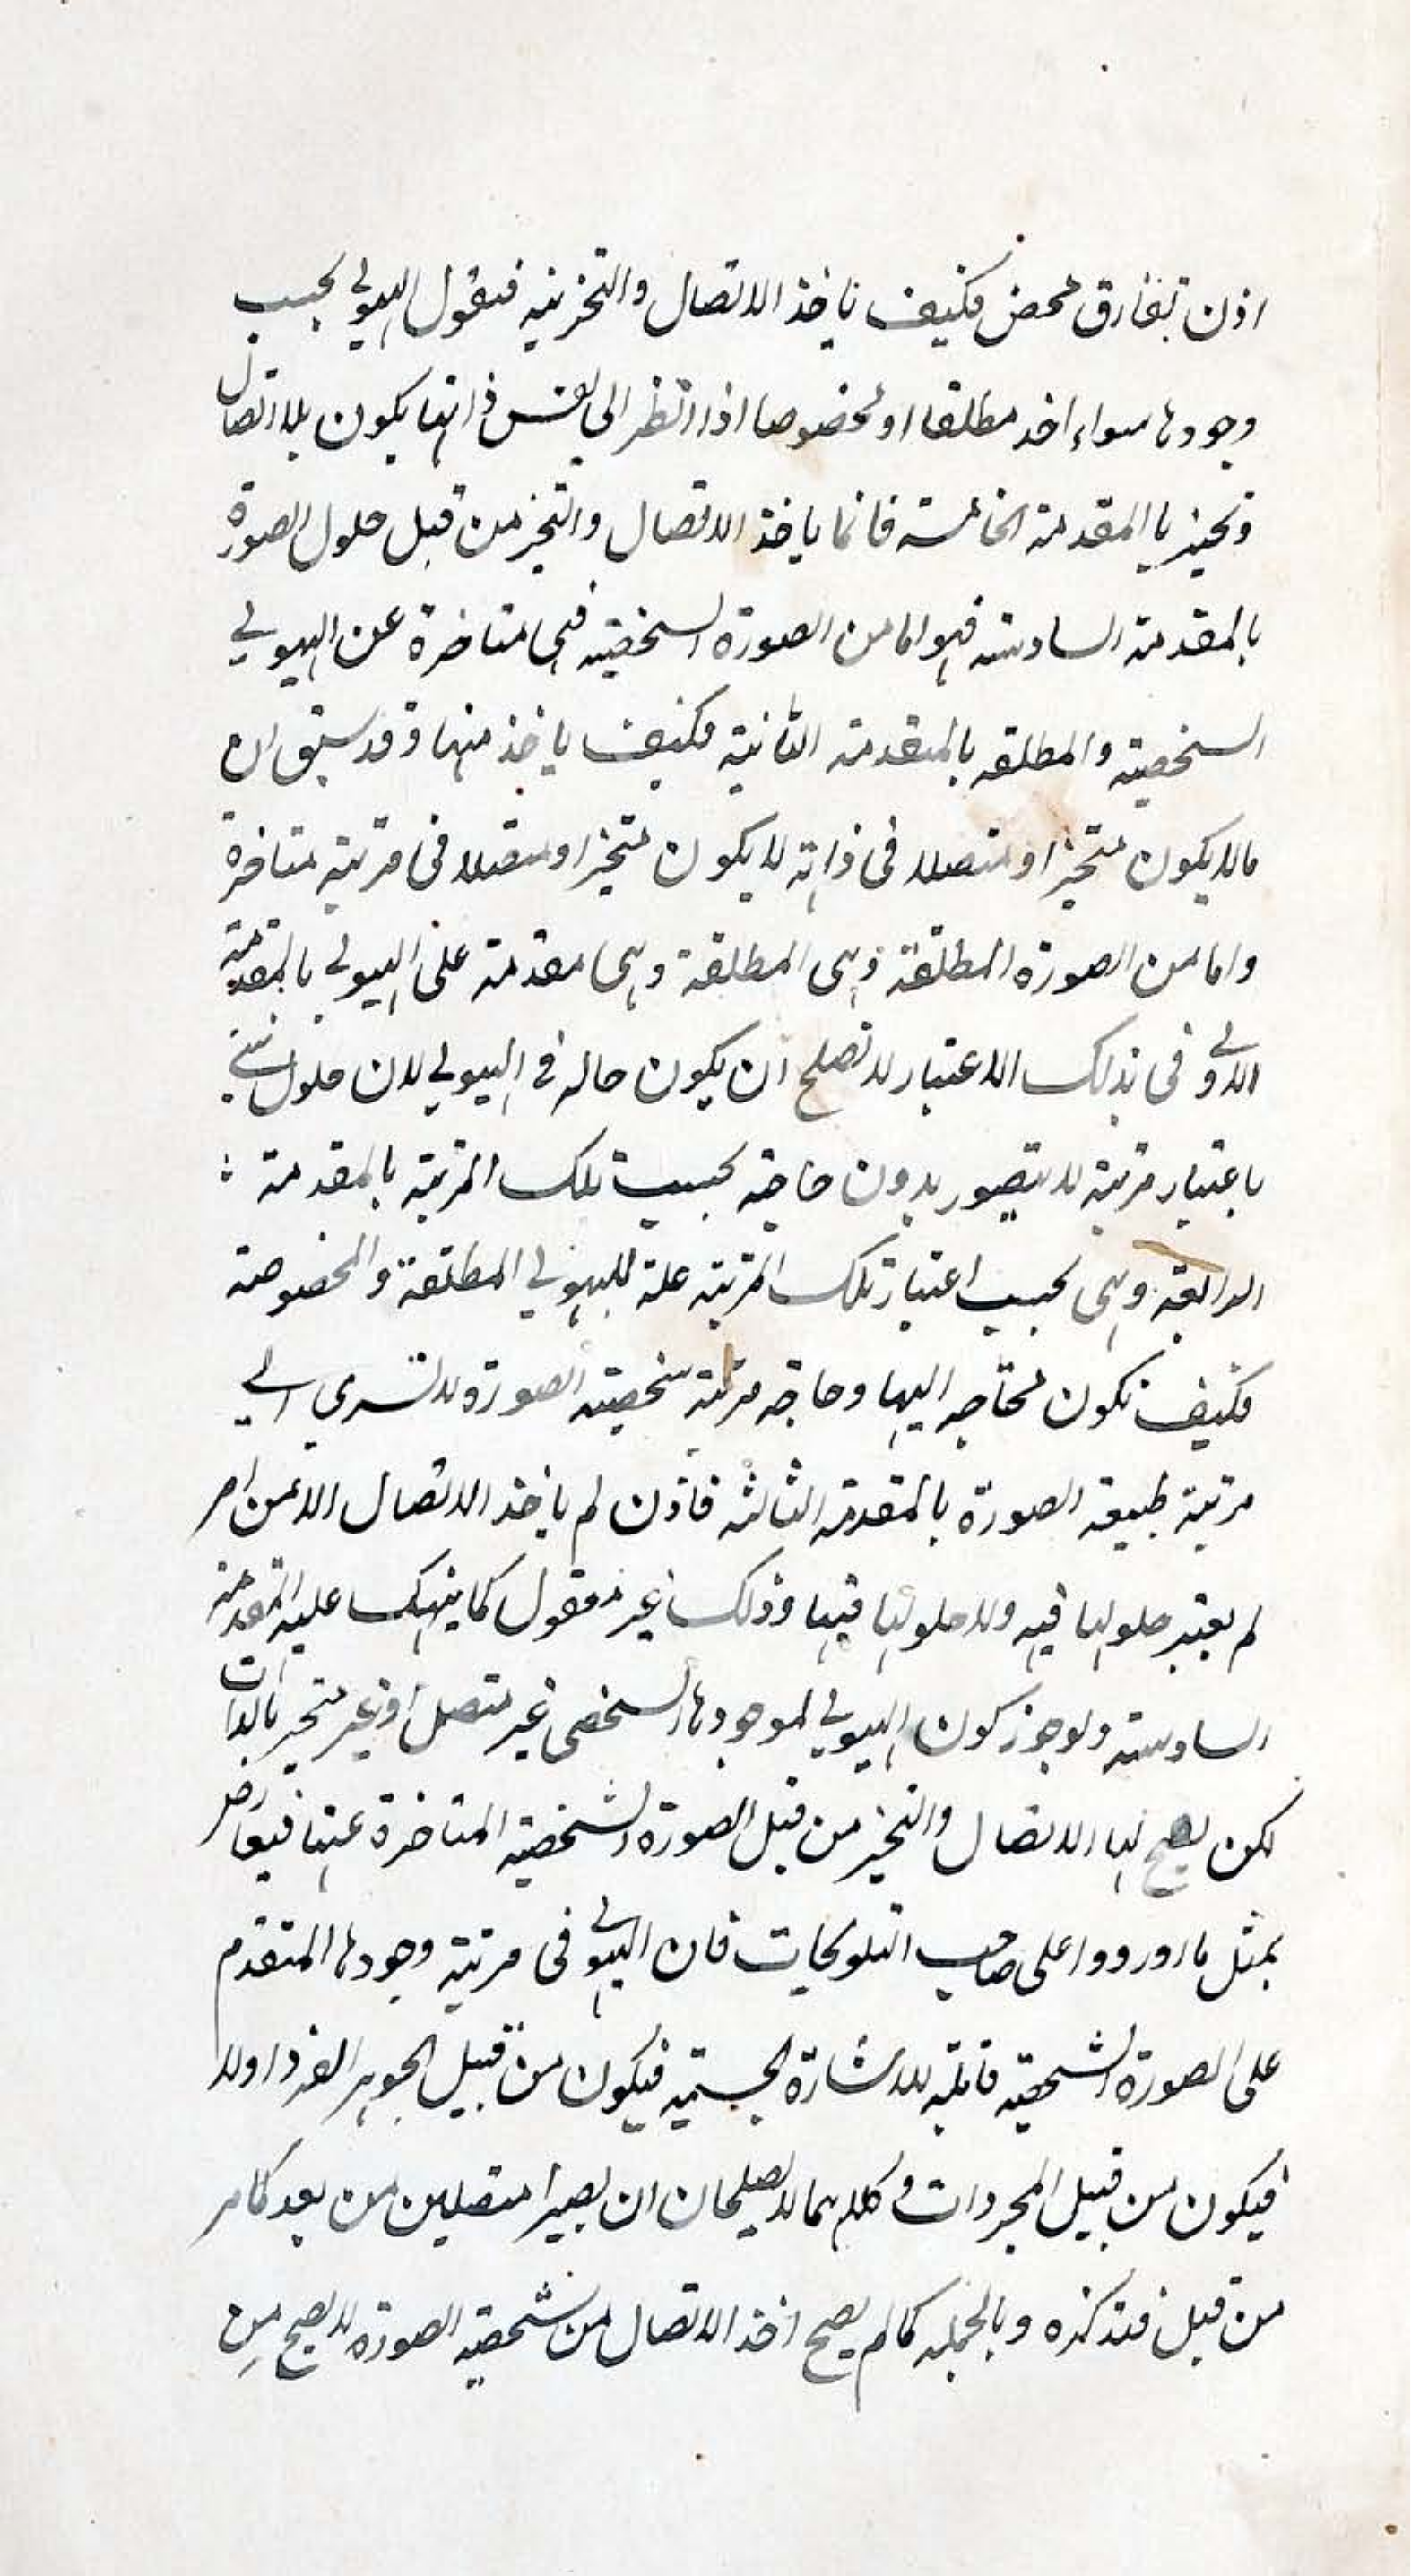 اذن تفارق محض فكيف ياخذ الاتصال والتحزيه فنقول الهيولي بحسب
وجودها سواء اخذ مطلقا او مخصوصا اذا انظر الى نفس ذاتها يكون بلا اتصال
وتحيز با المقدمة الخامسة فانما ياخذ الاتصال والتحيز من قبل حلول الصورة
بالمقدمة السادسة فهو اما من الصورة الشخصية فهى متاخرة عن الهيولي
الشخصية والمطلقه بالمقدمة الثانية فكيف ياخذ منها وقد سبق ان
مالا يكون متحيزا ومتصلا فى ذاته لا يكون متحيزا ومتصلا فى مرتبة متاخرة
واما من الصورة المطلقة وهى المطلقة وهى مقدمة على الهيولي بالمقدمة
الاولي وفى بذلك الاعتبار لا تصلح ان يكون حاله في الهيولي لان حلول شئ
باعتبار مرتبة لا يتصور بدون حاجة بحسب تلك المرتبة بالمقدمة
الرابعة وهى بحسب اعتبار تلك المرتبة علة للهيولي المطلقة والمخصوصة
فكيف تكون محتاجه اليها وحاجه مرتبة شخصية الصورة لا تسري الي
مرتبة طبيعة الصورة بالمقدمة الثالثه فاذن لم ياخذ الاتصال الا من امر
لم يعتبر حلولها فيه ولا حلولها فيها وذلك غير معقول كما ينبهك عليه المقدمة
السادسة ولو جوز كون الهيولي لموجودها الشخصى غير متصل او غير متحيز بالذات
لكن يصح لها الاتصال والتحيز من قبل الصورة الشخصية المتاخرة عنها فيعارض
بمثل ما اوردوا على صاحب التلويحات فان الهيولي فى مرتبة وجودها المتقدم
على الصورة الشخصية قابلة للاشارة الحسية فيكون من قبيل الجوهر الفرد اولا
فيكون من قبيل المجردات وكلاهما لا يصلحان ان يصيرا متصلين من بعد كما مر
من قبل فتذكره وبالجمله كما لم يصح اخذ الاتصال من شخصية الصورة لا يصح من